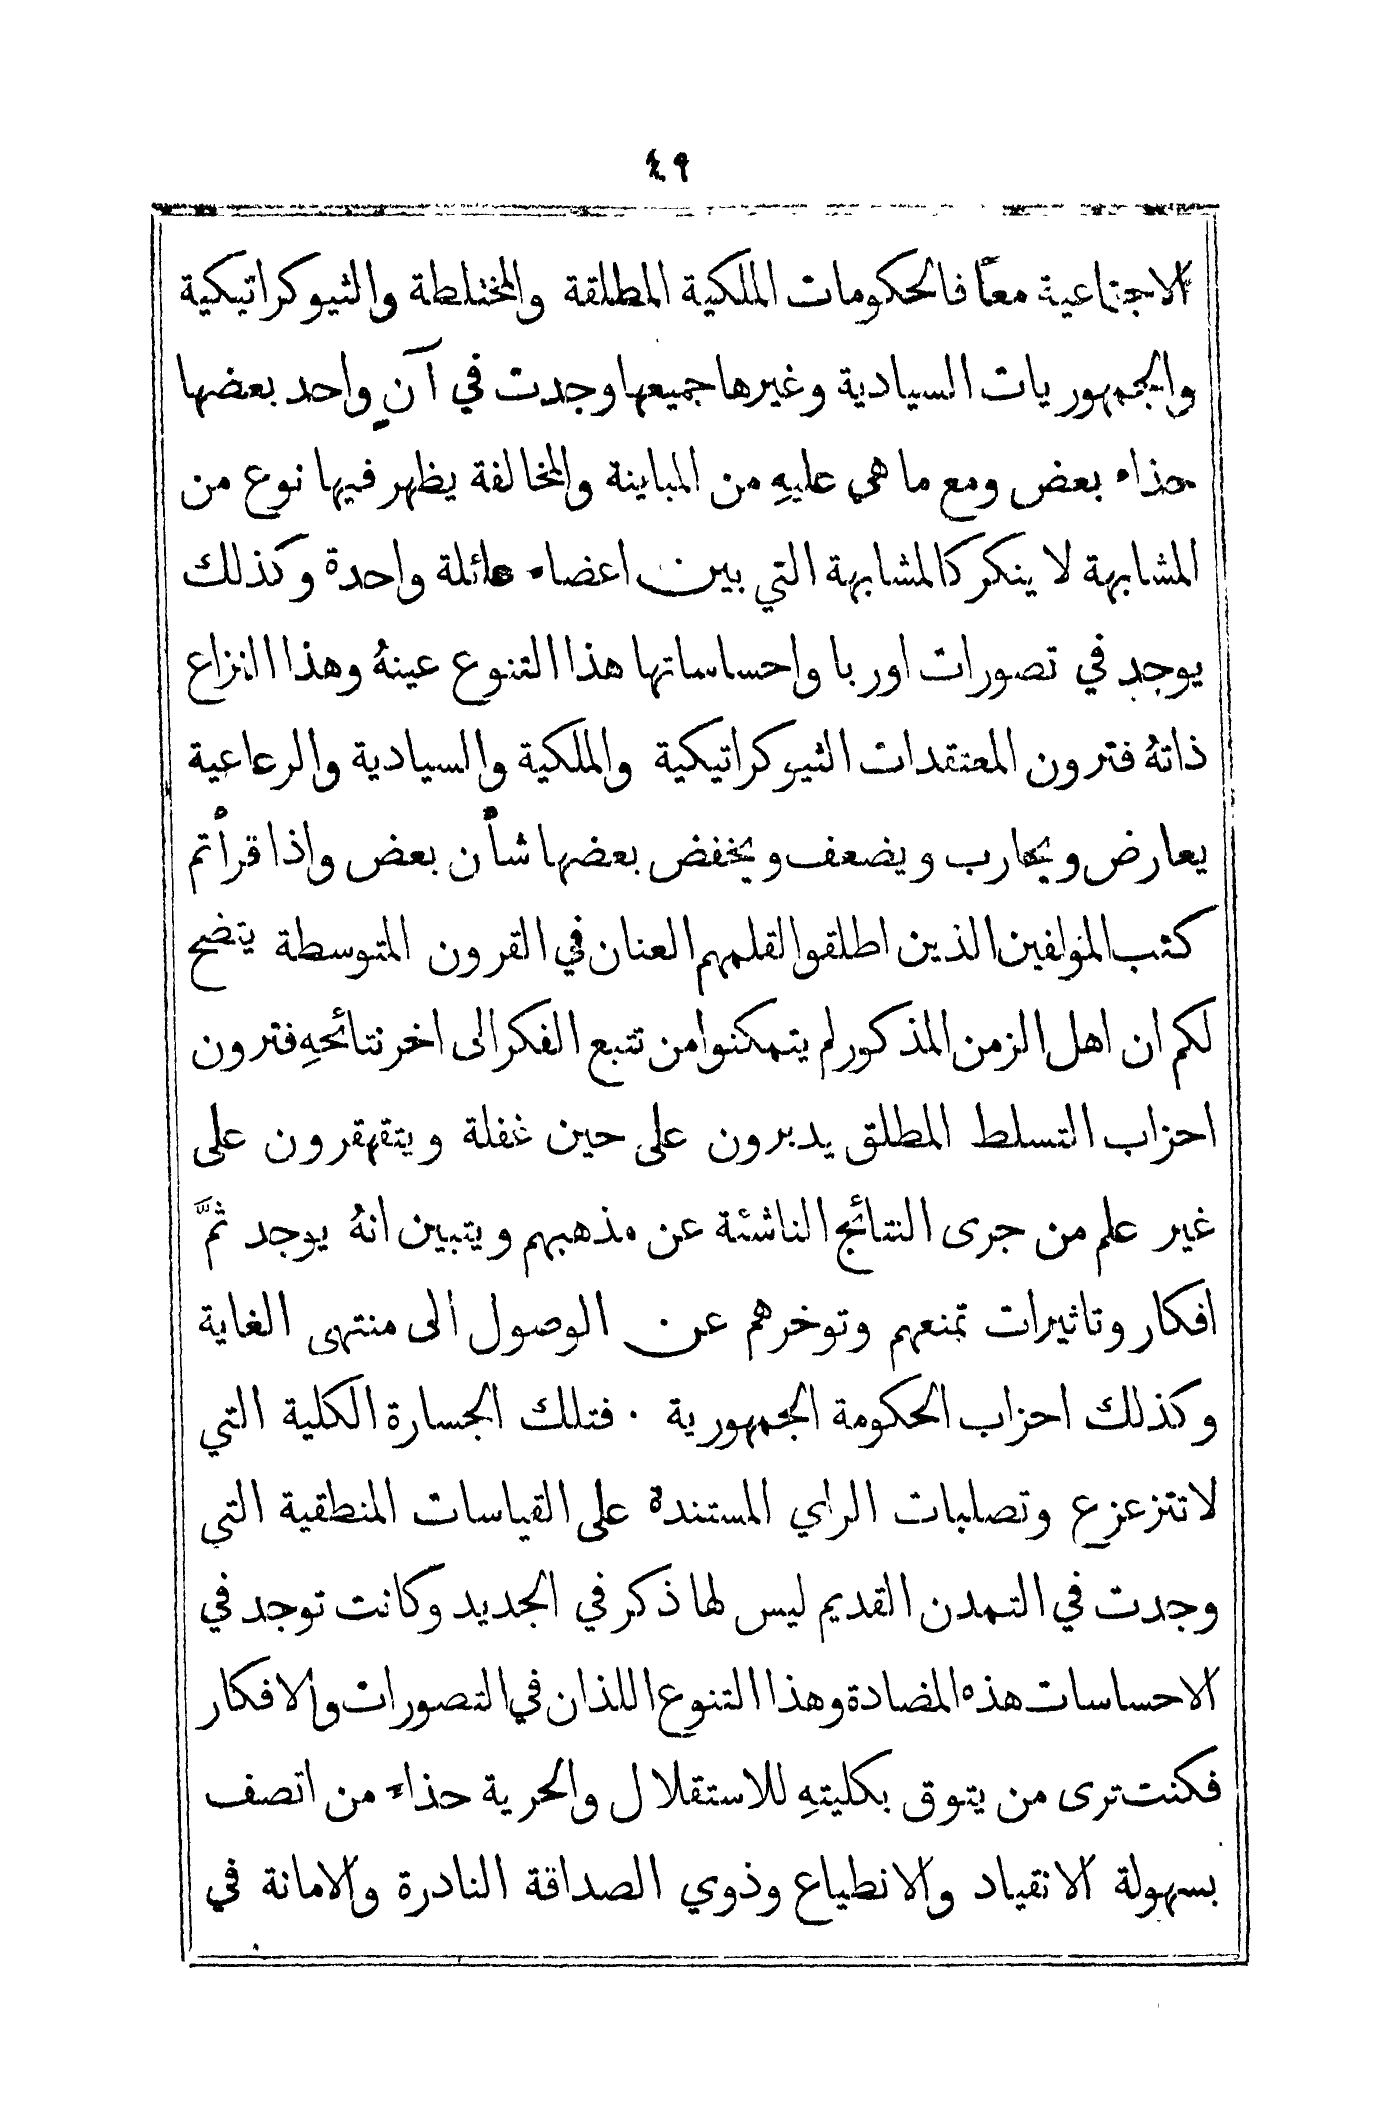 ٤٩
الاجتماعية معاً فالحكومات الملكية المطلقة والمختلطة والثيوكراتيكية
والجمهوريات السيادية وغيرها جميعها وجدت في آنٍ واحد بعضها
حذاء بعض ومع ما هي عليهِ من المباينة والمخالفة يظهر فيها نوع من
المشابهة لا ينكر كالمشابهة التي بين اعضاء عائلة واحدة وكذلك
يوجد في تصورات اوربا واحساساتها هذا التنوع عينهُ وهذا النزاع
ذاتهُ فترون المعتقدات الثيوكراتيكية والملكية والسيادية والرعاعية
يعارض ويحارب ويضعف ويخفض بعضها شأن بعض واذا قرأتم
كتب المؤلفين الذين اطلقوا لقلمهم العنان في القرون المتوسطة يتضح
لكم ان اهل الزمن المذكور لم يتمكنوا من تتبع الفكر الى اخر نتائجهِ فترون
احزاب التسلط المطلق يدبرون على حين غفلة ويتقهقرون على
غير علم من جرى النتائج الناشئة عن مذهبهم ويتبين انهُ يوجد ثمَّ
افكار وتاثيرات تمنعهم وتوخرهم عن الوصول الى منتهى الغاية
وكذلك احزاب الحكومة الجمهورية . فتلك الجسارة الكلية التي
لا تتزعزع وتصلبات الراي المستندة على القياسات المنطقية التي
وجدت في التمدن القديم ليس لها ذكر في الجديد وكانت توجد في
الاحساسات هذه المضادة وهذا التنوع اللذان في التصورات والافكار
فكنت ترى من يتوق بكليتهِ للاستقلال والحرية حذاء من اتصف
بسهولة الانقياد والانطياع وذوي الصداقة النادرة والامانة في